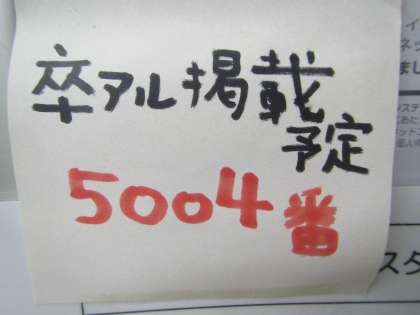 卒アル掲載
予定
5004番
スタ